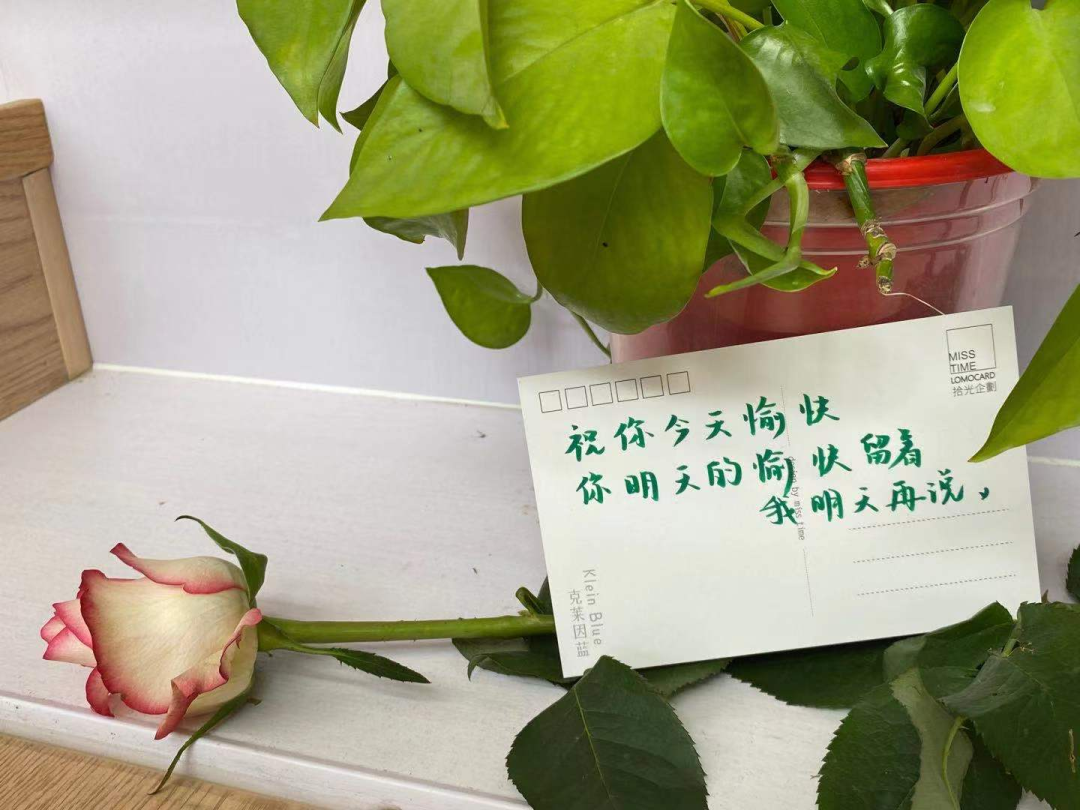 MISS
TIME
LOMOCARD
拾光企劃
祝你今天愉快
你明天的愉快留着
我明天再说,
Klein Blue
克莱因蓝